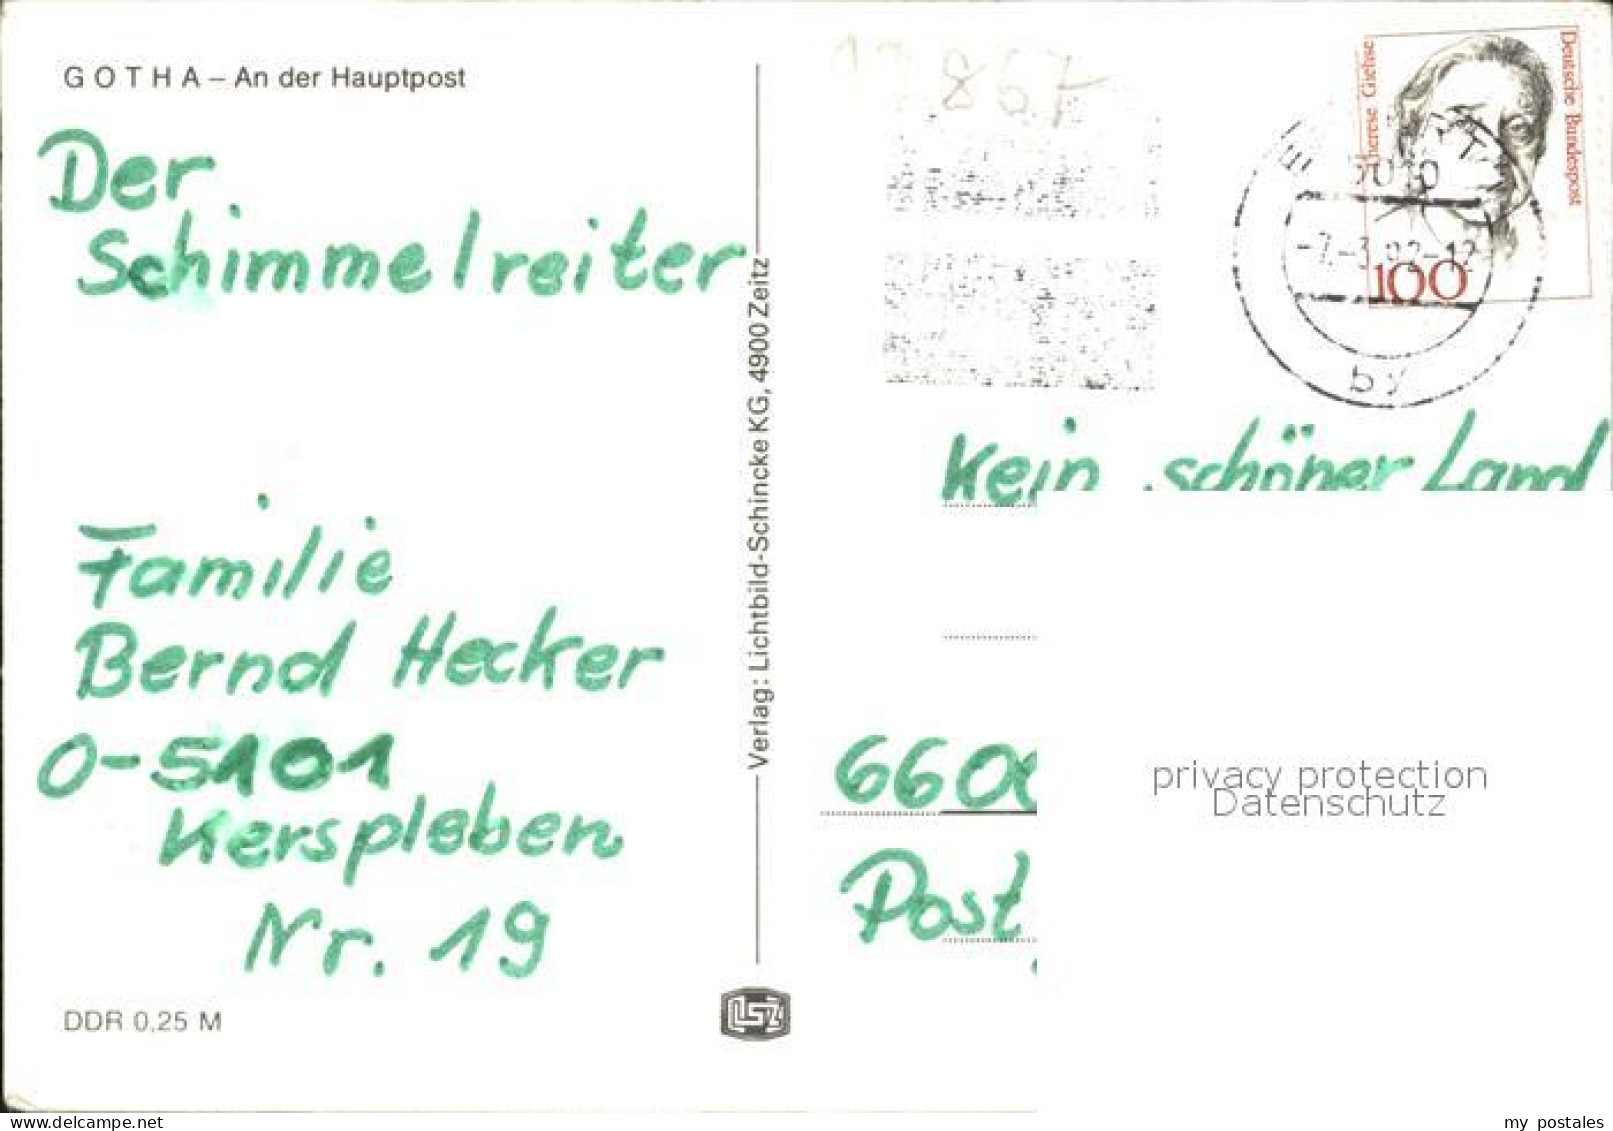 GOTHA – An der Hauptpost
Der
Schimmelreiter
Familie
Bernd Hecker
O-5101
Kerspleben
Nr. 19
DDR 0,25 M
Verlag: Lichtbild-Schincke KG, 4900 Zeitz
LSZ
867
Therese Giehse
Deutsche Bundespost
100
by
Kein schöner Land
660
Post
privacy protection
Datenschutz
delcampe.net
my postales